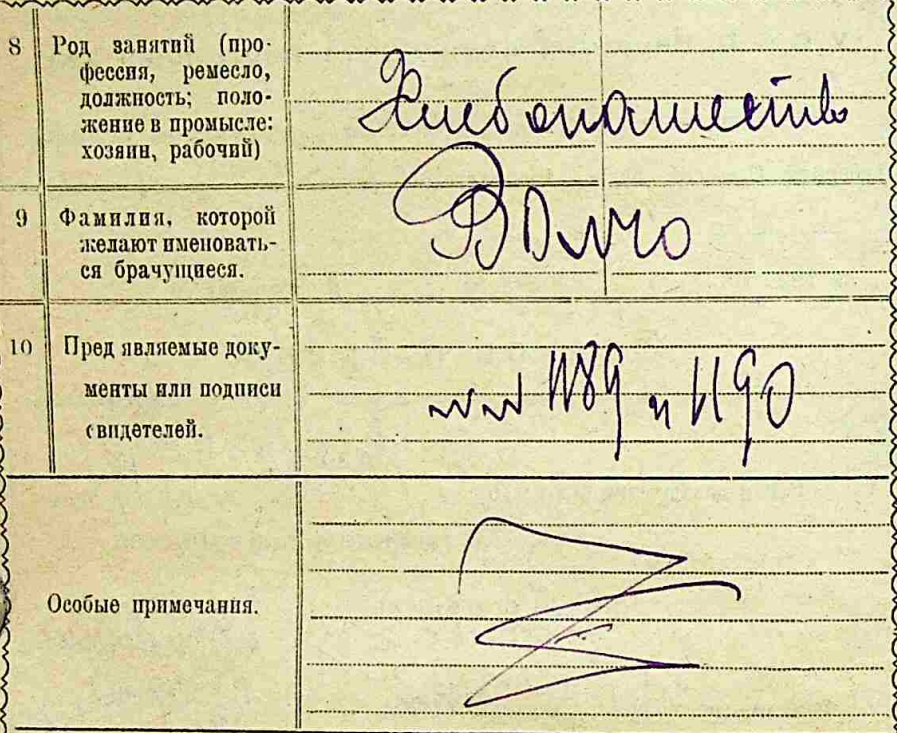 8 Род занятий (про-
фессия, ремесло,
должность; поло-
жение в промысле:
хозяин, рабочий)
Хлебопашество
9 Фамилия, которой
желают именовать-
ся брачущиеся.
10 Пред'являемые доку-
менты или подписи
свидетелей.
1189 и 1190
Особые примечания.